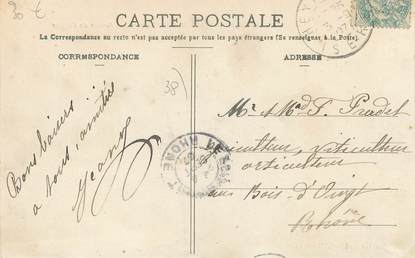 30 €
CARTE POSTALE
La Correspondance au recto n'est pas acceptée par tous les pays étrangers (Se renseigner à la Poste)
CORRESPONDANCE
ADRESSE
38)
Bons baisers
à tous, amitiés
Jeanne
Mr & Mad F. Pradel
viticulteur
orticulteur
au Bois-d'Oingt
Rhône
RHONE
ISERE